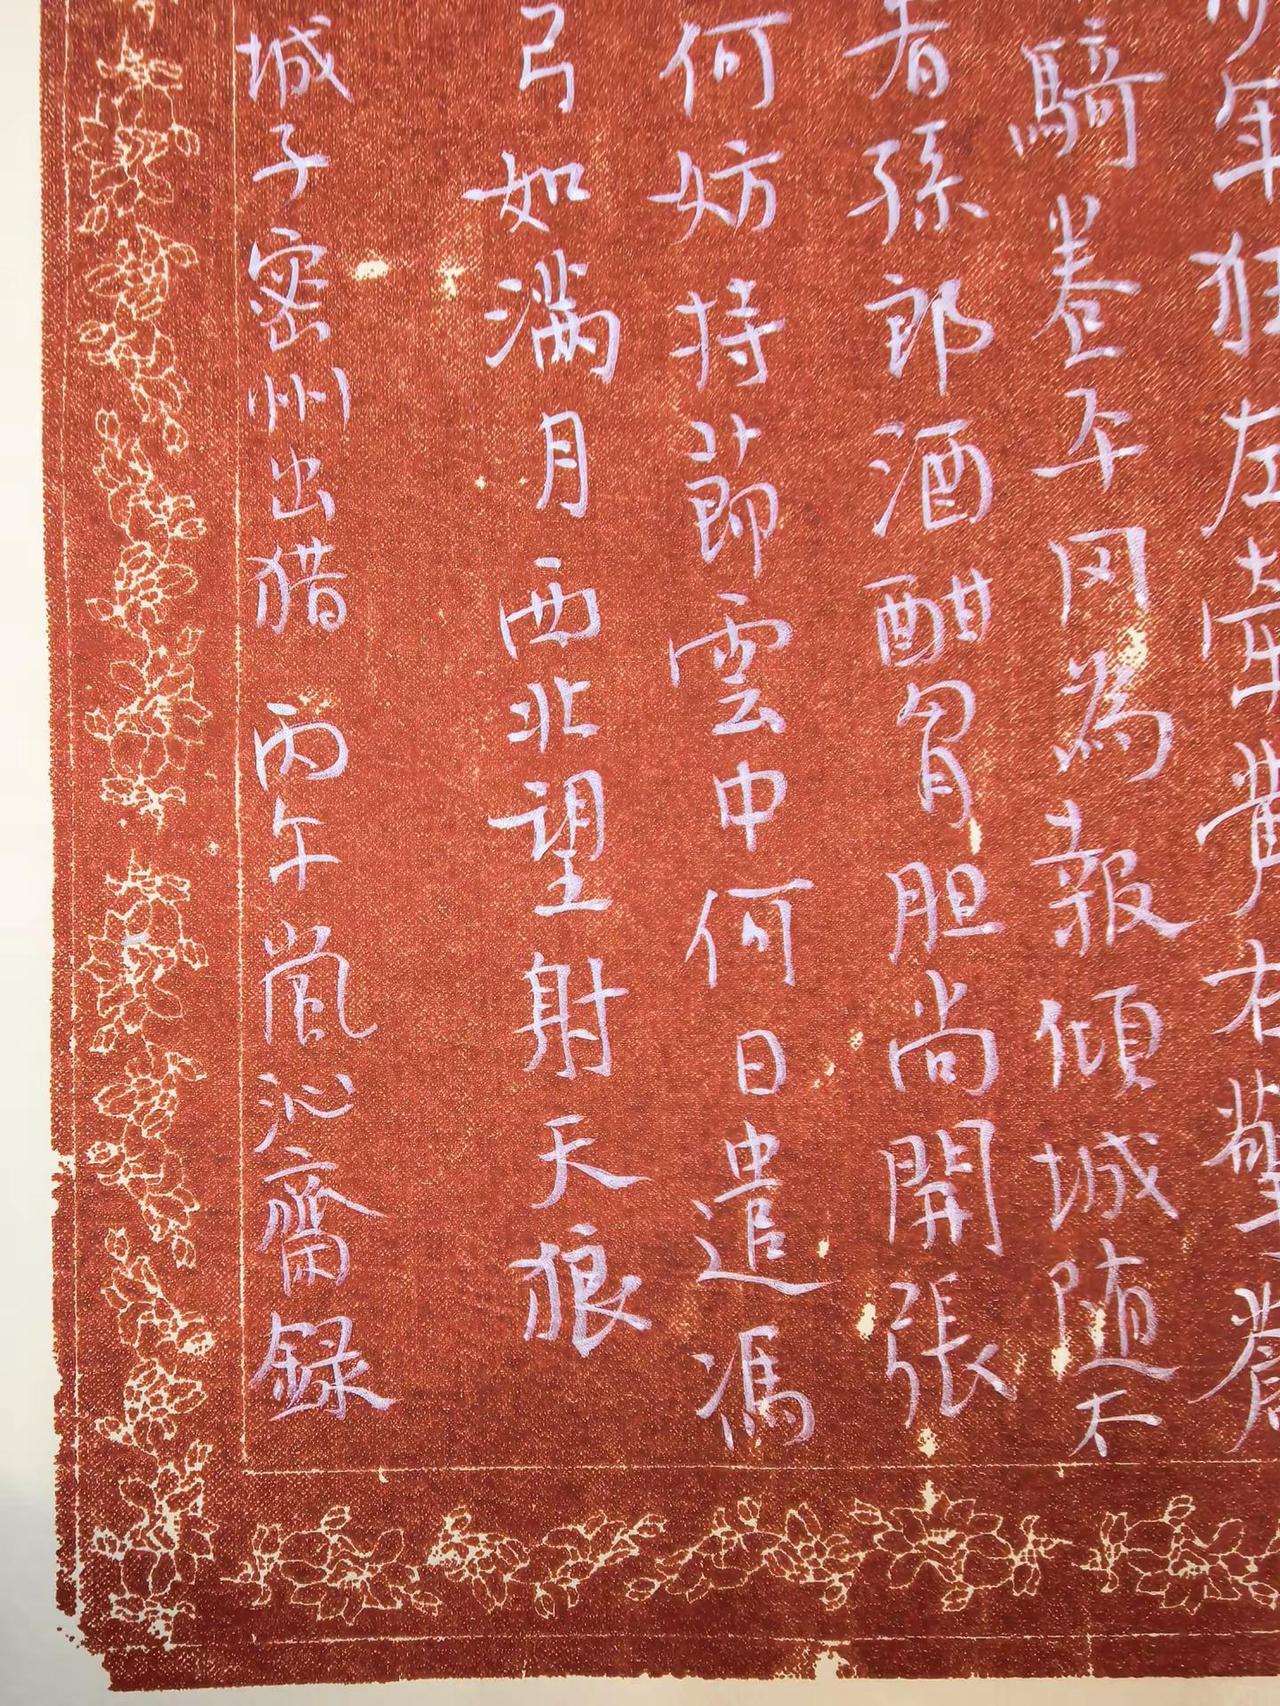 少年狂左牽黃右擎蒼
騎卷平冈為報傾城随太
看孫郎酒酣胷胆尚開張
何妨持節雲中何日遣馮
弓如満月西北望射天狼
城子密州出猎 丙午沁齋録